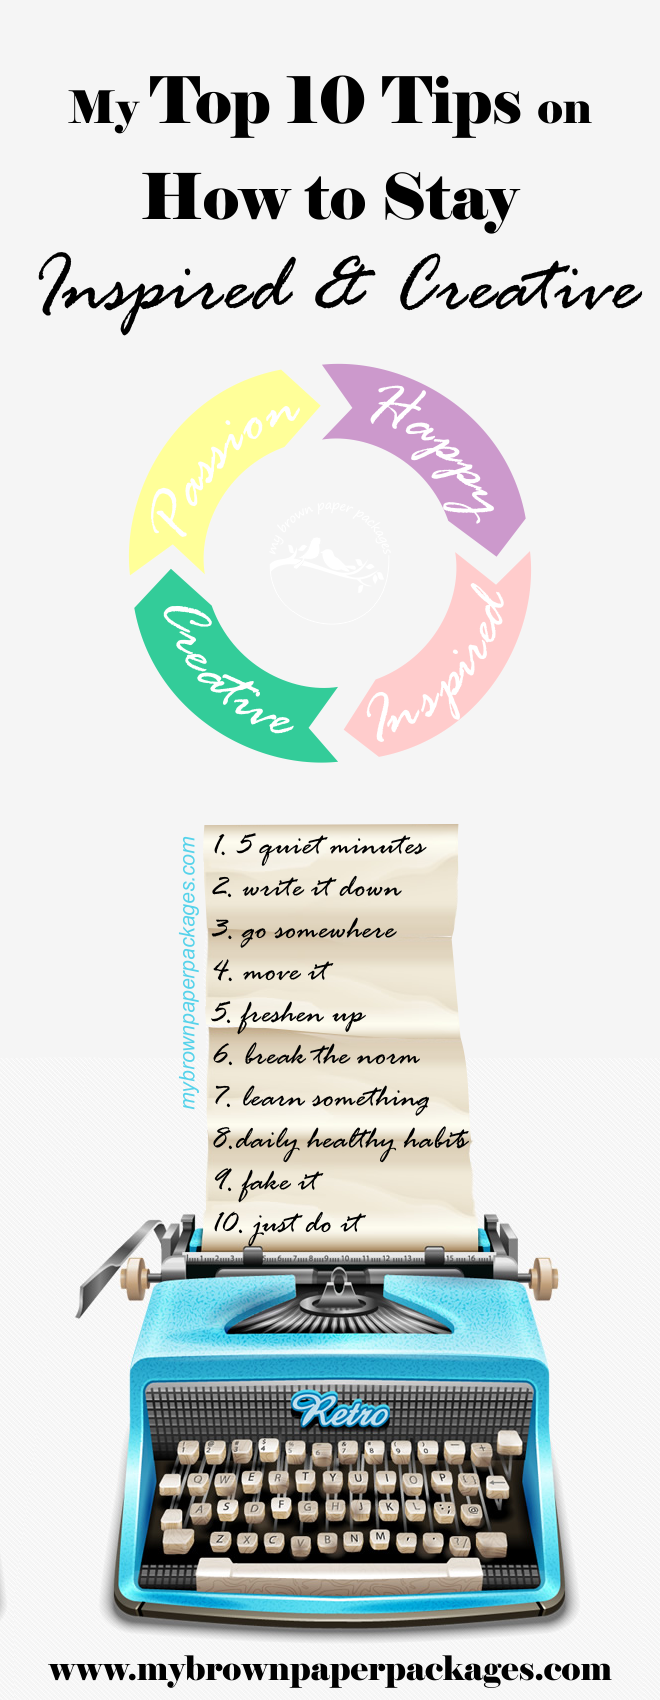 My Top 10 Tips on
How to Stay
Inspired & Creative
Passion
Happy
my brown paper packages
Creative
Inspired
mybrownpaperpackages.com
1. 5 quiet minutes
2. write it down
3. go somewhere
4. move it
5. freshen up
6. break the norm
7. learn something
8.daily healthy habits
9. fake it
10. just do it
1 2 3 6 7 8 9 10 11 12 13 15 16
Retro
Q W E R T Y U I O P
A S D F G H J K L
Z X C V B N M
www.mybrownpaperpackages.com